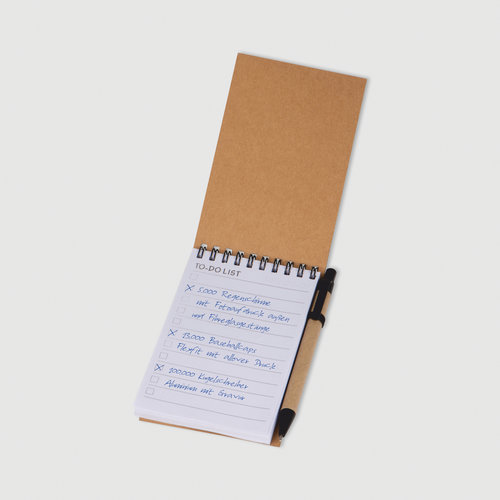 TO-DO LIST
5.000 Regenschirme
mit Fotoaufdruck außen
und Fibreglasgestänge
15.000 Baseballcaps
Flexfit mit allover Druck
100.000 Kugelschreiber
Aluminium mit Gravur